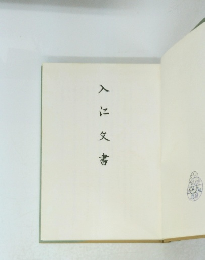 入江文書